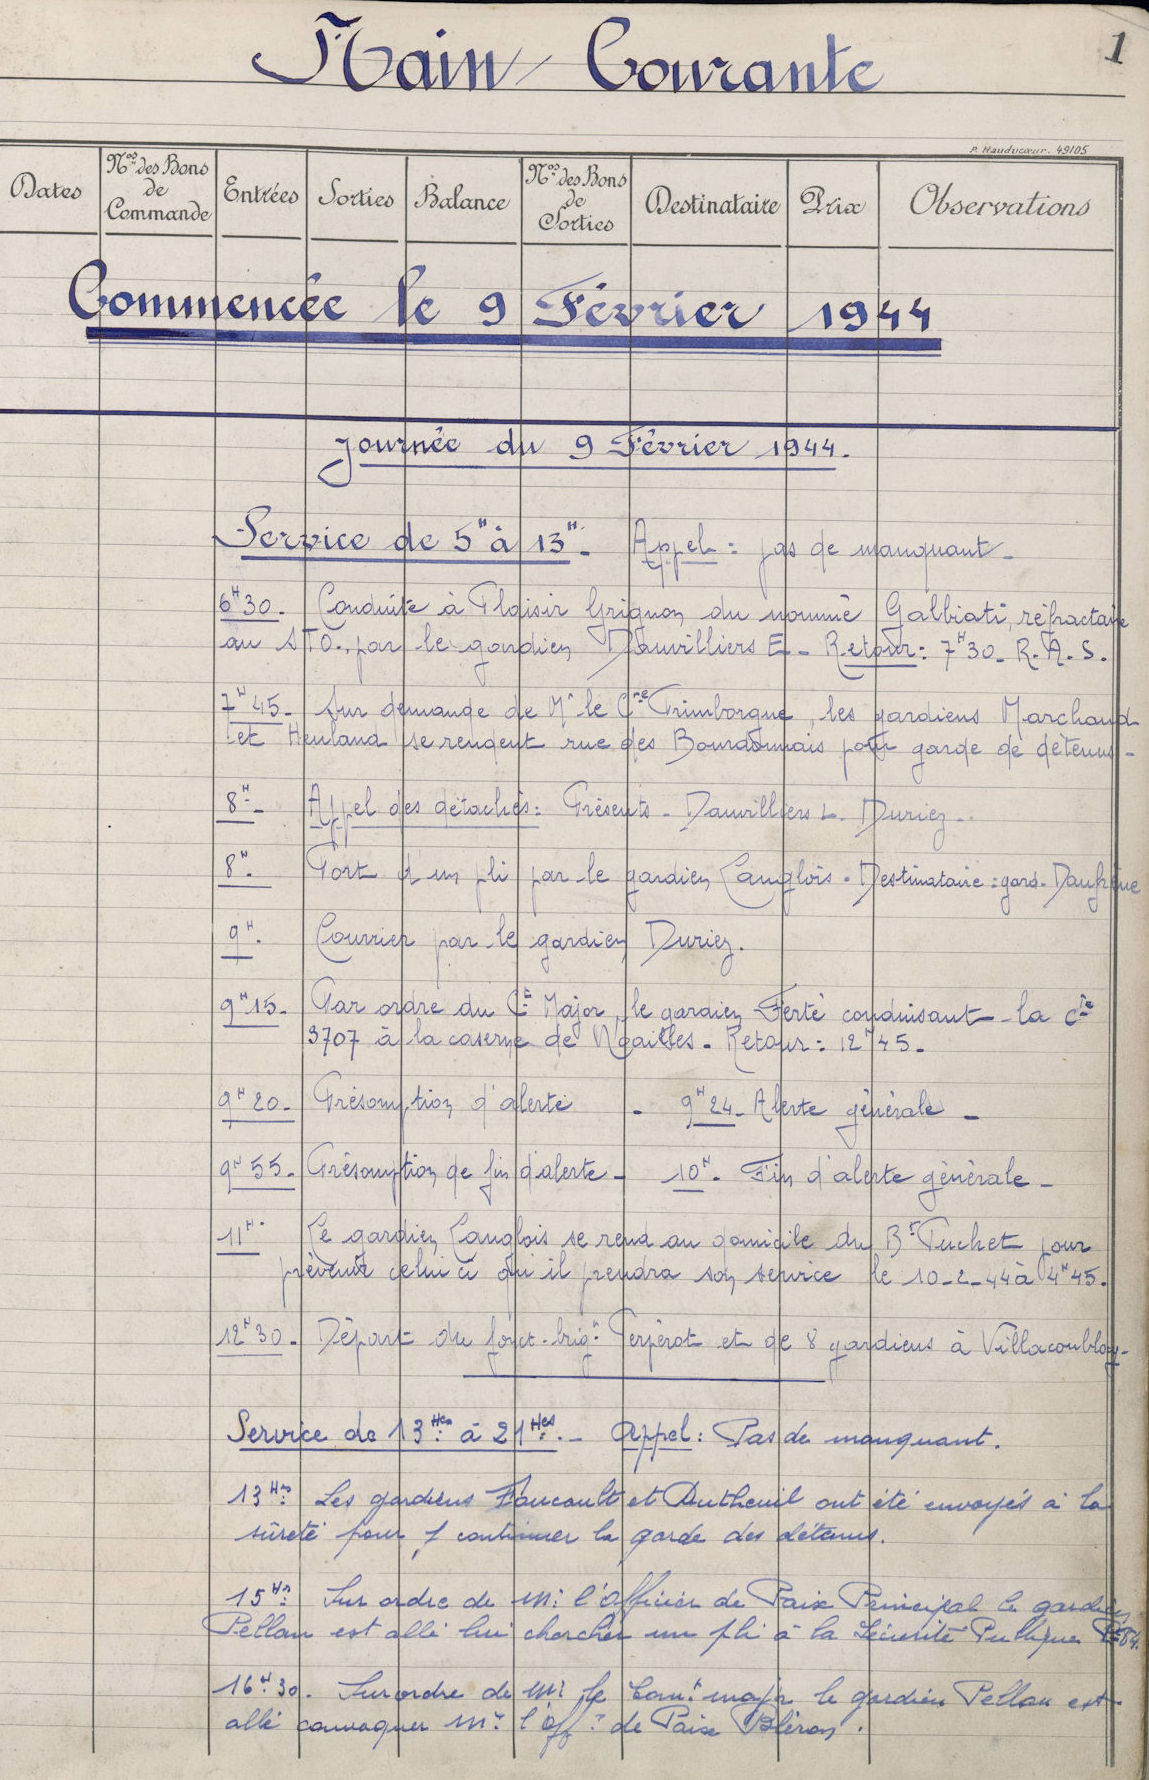 1
Main Courante
P. Hauducœur. 49105
Dates
Nos des Bons de Commande
Entrées
Sorties
Balance
Nos des Bons de Sorties
Destinataire
Prix
Observations
Commencée le 9 Février 1944
Journée du 9 Février 1944.
Service de 5H à 13H. Appel : pas de manquant.
6H30. Conduite à Plaisir Grignon du nommé Galbiati, réfractaire
au STO., par le gardien Dauvilliers E. Retour : 7H30. R.A.S.
7H45. Sur demande de Mr le Cre Trimborgue, les gardiens Marchand
et Heuland se rendent rue des Bourdonnais pour garde de détenus.
8H. Appel des détachés : Présents. Dauvilliers L. Duriez..
8H. Port d'un pli par le gardien Langlois. Destinataire : gard.
9H. Courrier par le gardien Duriez.
9H15. Par ordre du Ct Major, le gardien Ferté conduisant la Cie
3707 à la caserne de Noailles. Retour : 12H45.
9H20. Présomption d'alerte - 9H24. Alerte générale -
9H55. Présomption de fin d'alerte - 10H. Fin d'alerte générale -
11H. Le gardien Langlois se rend au domicile du Br Puchet pour
prévenir celui ci qu'il prendra son service le 10-2-44 à 4H45.
12H30. Départ du fonct. brigr Perpérot et de 8 gardiens à Villacoublay.
Service de 13Hes à 21Hes. - Appel : Pas de manquant.
13Hes Les gardiens Foucault et Dutheuil ont été envoyés à la
sûreté pour y continuer la garde des détenus.
15Hes Sur ordre de Mr l'Officier de Paix Principal le gardien
Pellau est allé lui chercher un pli à la Sécurité Publique
16H30. Sur ordre de Mr le Comt major le gardien Pellau est
allé convoquer Mr l'Offr de Paix Bléron.